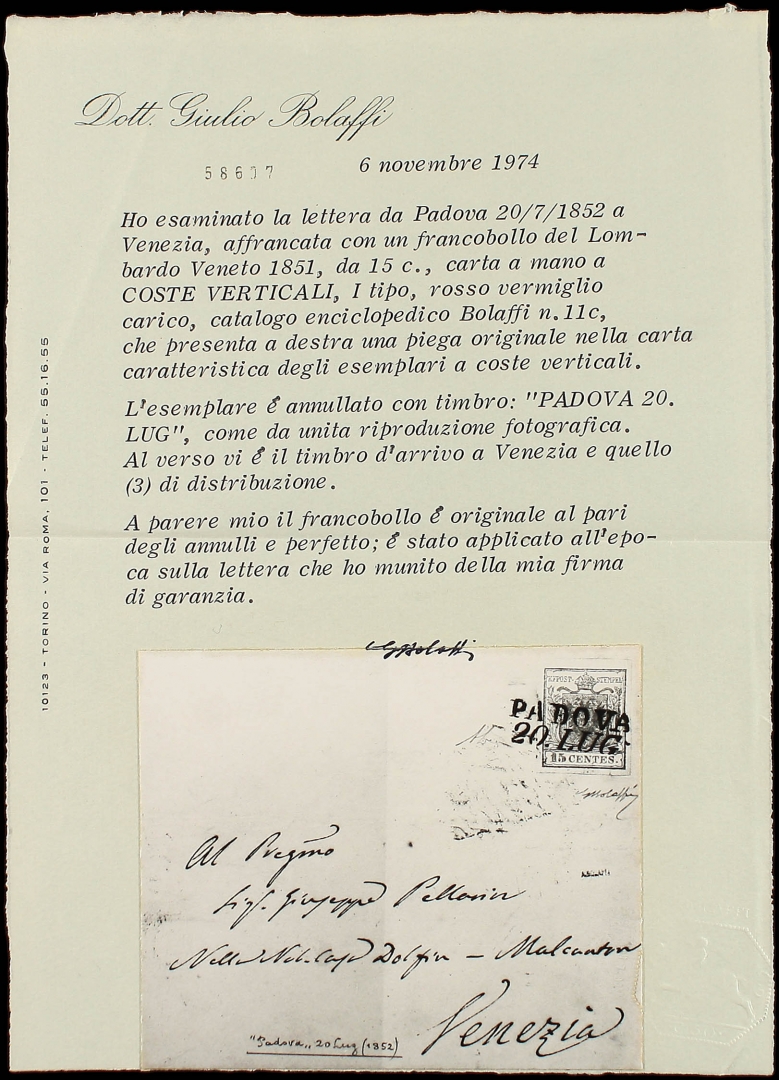 Dott. Giulio Bolaffi
58607
6 novembre 1974
Ho esaminato la lettera da Padova 20/7/1852 a
Venezia, affrancata con un francobollo del Lom-
bardo Veneto 1851, da 15 c., carta a mano a
COSTE VERTICALI, I tipo, rosso vermiglio
carico, catalogo enciclopedico Bolaffi n.11c,
che presenta a destra una piega originale nella carta
caratteristica degli esemplari a coste verticali.
L'esemplare é annullato con timbro: "PADOVA 20.
LUG", come da unita riproduzione fotografica.
Al verso vi é il timbro d'arrivo a Venezia e quello
(3) di distribuzione.
A parere mio il francobollo é originale al pari
degli annulli e perfetto; é stato applicato all'epo-
ca sulla lettera che ho munito della mia firma
di garanzia.
10123 - TORINO - VIA ROMA, 101 - TELEF. 55.16.55
GBolaffi
KKPOST-STEMPEL
PADOVA
20. LUG.
15 CENTES.
GBolaffi
Al Pregmo
Sigr. Giuseppe Pellarin
Nella Nob. Casa Dolfin - Malcanton
Venezia
"Padova„ 20 Lug (1852)